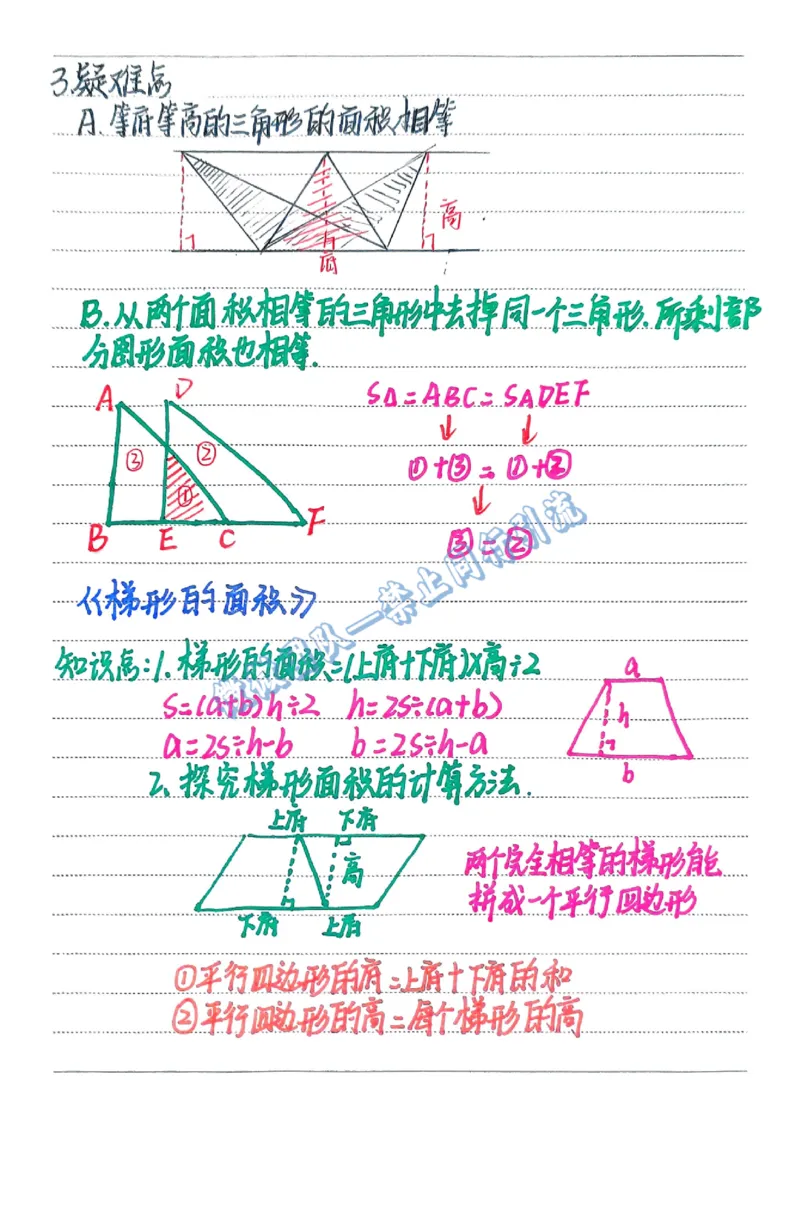 3.疑难点
A.等底等高的三角形的面积相等
高
底
B.从两个面积相等的三角形中去掉同一个三角形.所剩部
分图形面积也相等.
A D
③ ② ①
B E C F
S△=ABC=S△DEF
↓ ↓
①+③=①+②
↓
③=②
《梯形的面积》
知识点:1.梯形的面积=(上底+下底)×高÷2
S=(a+b)h÷2 h=2s÷(a+b)
a=2s÷h-b b=2s÷h-a
a
h
b
2、探究梯形面积的计算方法.
上底 下底
高
下底 上底
两个完全相等的梯形能
拼成一个平行四边形
①平行四边形的底=上底+下底的和
②平行四边形的高=每个梯形的高
队一禁止同行引流